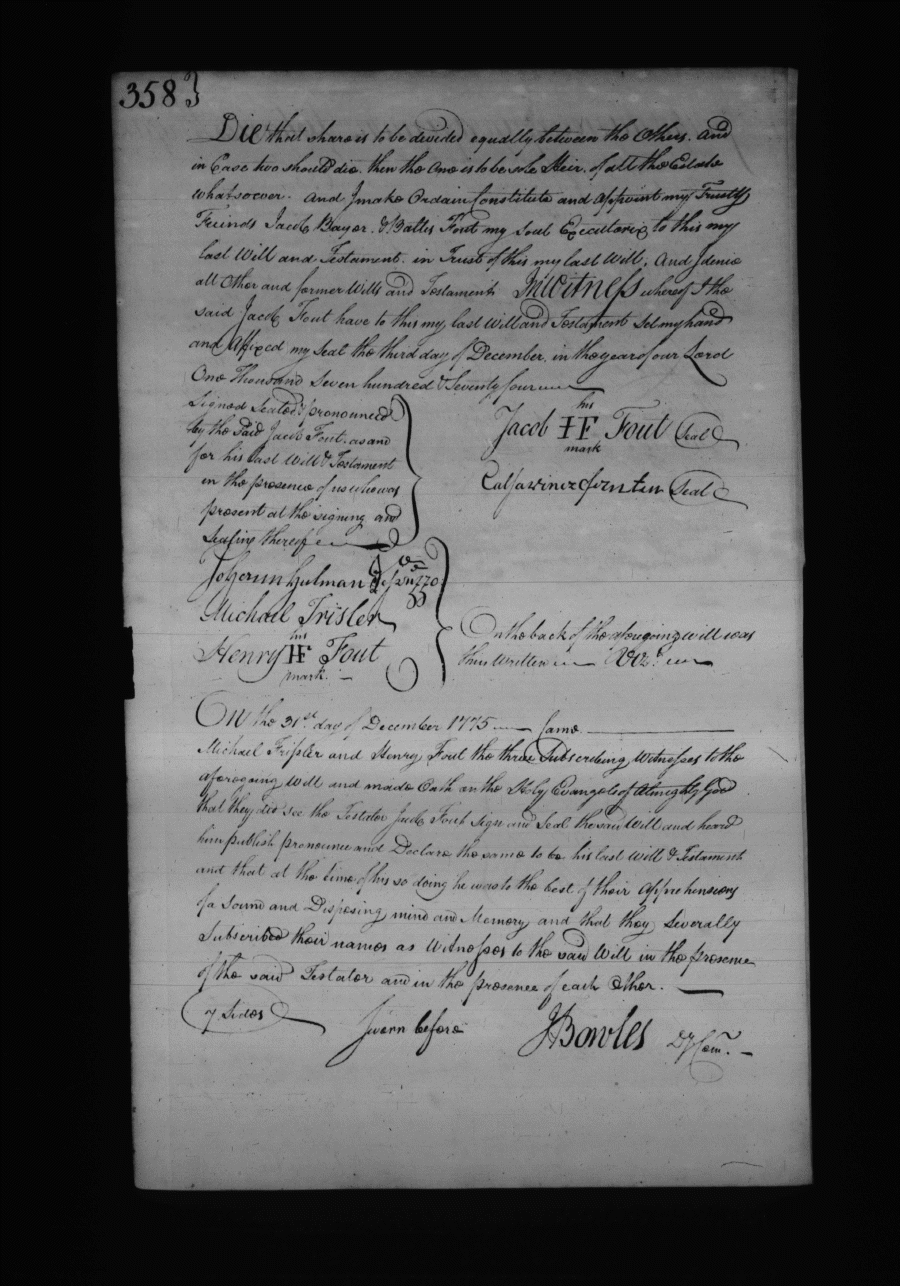 358
Die that share is to be devided equally between the Others. And
in Case two should die. then the One is to be sole Heir. of all the Estate
whatsoever. And I make Ordain Constitute and appoint my Trusty
Freinds Jacob Bayer. & Baltis Fout my Soul Executorix to this my
last Will and Testament. in Trust of this my last Will, And I denie
all Other and former Wills and Testaments In Witness whereof I the
said Jacob Fout have to this my last Will and Testament Set my hand
and Affixed my Seal the third day of December, in the year of our Lord
One Thousand Seven hundred & Seventy four
Signed Sealed & pronounced
by the Said Jacob Fout. as and
for his Last Will & Testament
in the presence of us who was
present at the signing and
Sealing thereof
his
Jacob HF Fout Seal
mark
Seal
Michael Trisler
his
Henry HF Fout
mark.
On the back of the aforegoing will was
thus Written Viz.
On the 31st. day of December 1775 Came
Michael Trisler and Henry Fout the three Subscribing Witnesses to the
aforegoing Will and made Oath on the Holy Evangels of Almighty God
that they did see the Testator Jacob Fout Sign and Seal the said Will and heard
him publish pronounce and Declare the same to be his last Will & Testament
and that at the time of his so doing he was to the best of their apprehensions
of a Sound and Disposing mind and Memory and that they Severally
Subscribed their names as Witnesses to the said Will in the presence
of the said Testator and in the presence of each Other.
7 Sides
Sworn before
J Bowles Dy Com.